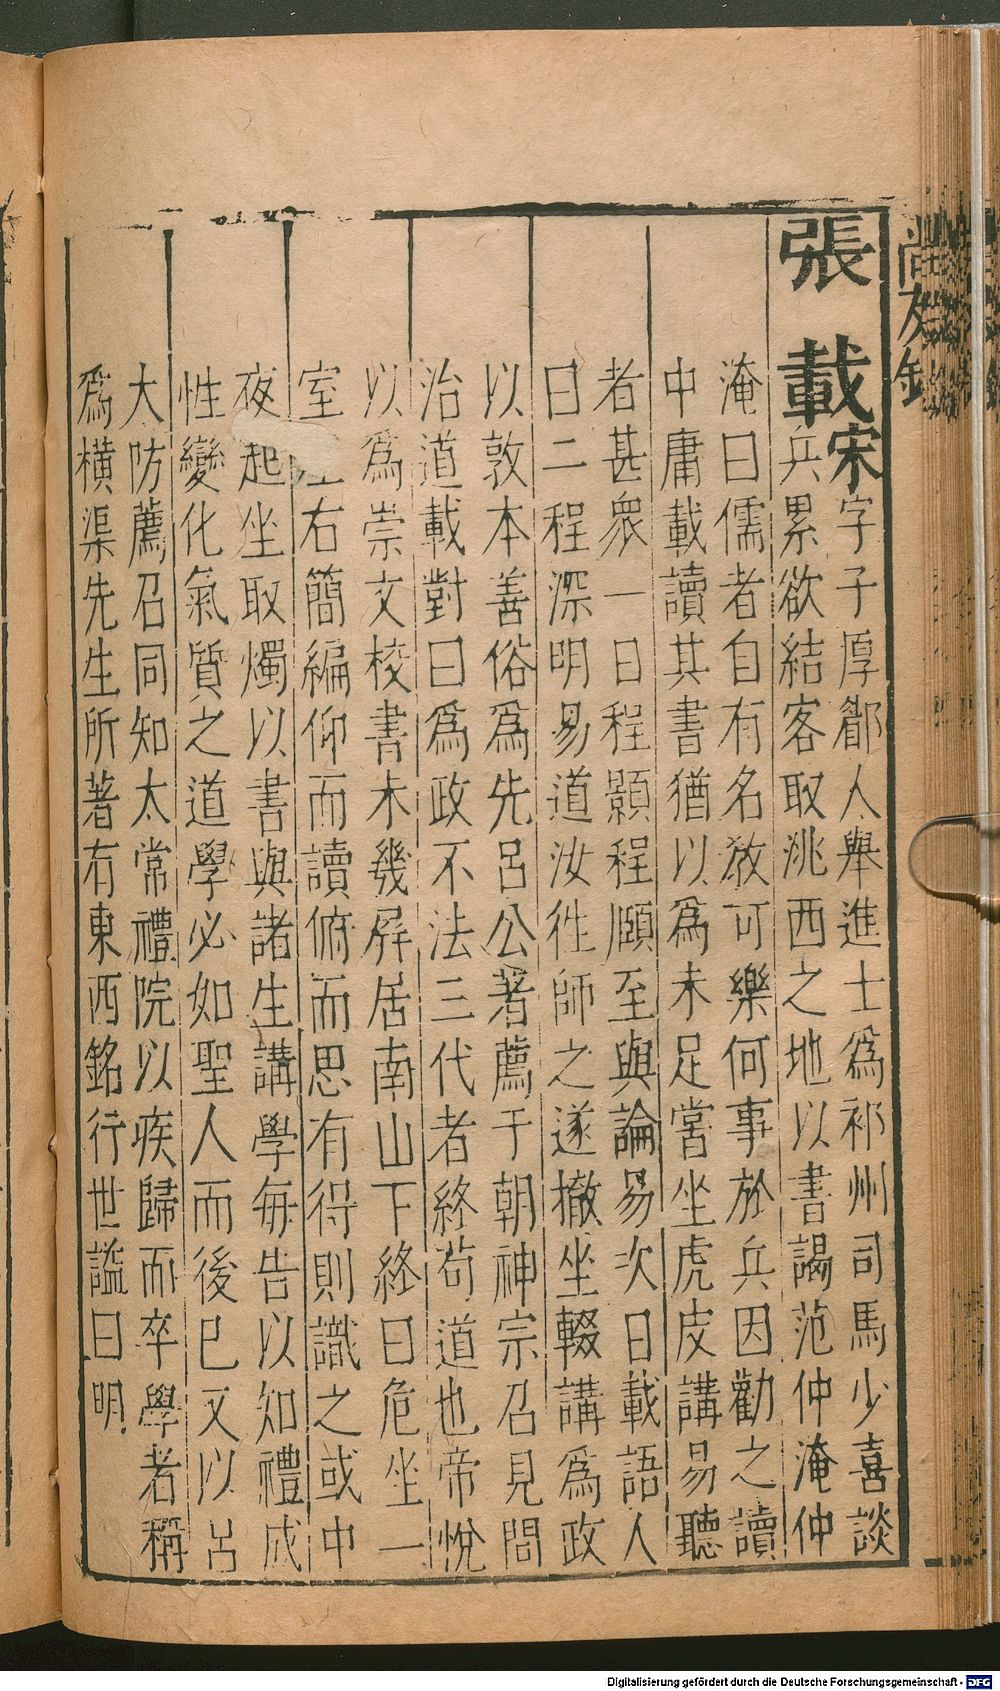 張載宋字子厚郿人舉進士爲祁州司馬少喜談
兵累欲結客取洮西之地以書謁范仲淹仲
淹曰儒者自有名教可樂何事於兵因勸之讀
中庸載讀其書猶以爲未足嘗坐虎皮講易聽
者甚衆一日程顥程頤至與論易次日載語人
曰二程深明易道汝徃師之遂撤坐輟講爲政
以敦本善俗爲先呂公著薦于朝神宗召見問
治道載對曰爲政不法三代者終苟道也帝悅
以爲崇文校書未幾屛居南山下終日危坐一
室右簡編仰而讀俯而思有得則識之或中
夜起坐取燭以書與諸生講學每告以知禮成
性變化氣質之道學必如聖人而後已又以呂
大防薦召同知太常禮院以疾歸而卒學者稱
爲橫渠先生所著有東西銘行世謚曰明
尚友錄
Digitalisierung gefördert durch die Deutsche Forschungsgemeinschaft - DFG